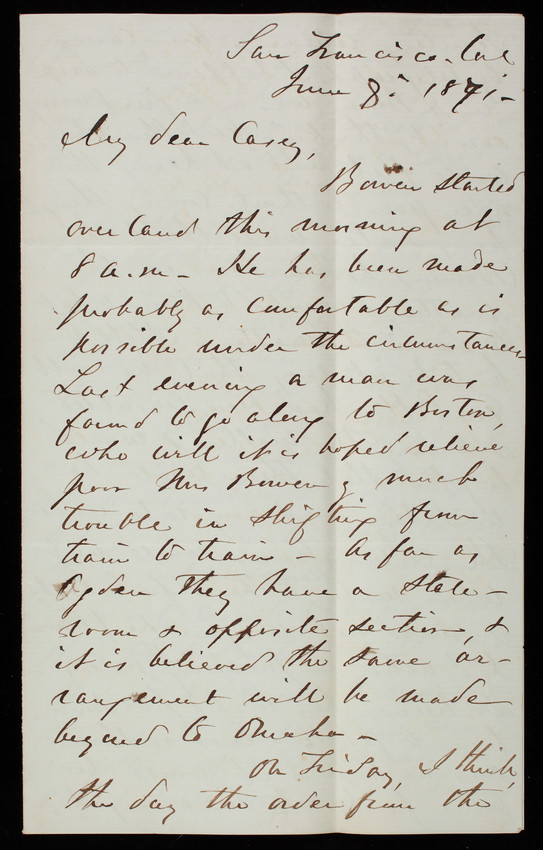 San Francisco. Cal
June 8. 1871-
My dear Casey,
Bowen started
over land this morning at
8 a.m - He has been made
probably as comfortable as is
possible under the circumstances-
Last evening a man was
found to go along to Boston,
who will it is hoped relieve
poor Mrs Bowen of much
trouble in shifting from
train to train - As far as
Ogden they have a state-
room & opposite section, &
it is believed the same ar-
rangement will be made
beyond to Omaha -
On Friday, I think,
the day the order from the